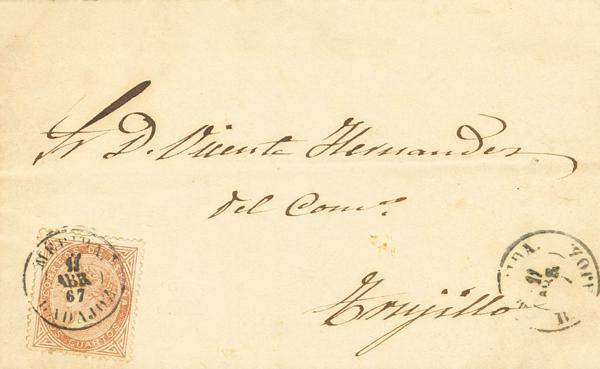 Sr D. Vicente Hernandez
del Comº.
Trujillo
MERIDA
11
ABR
67
BADAJOZ
CORREOS DE ESPAÑA
CUARTOS
11
ABR